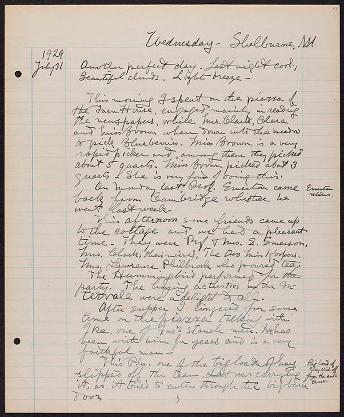 Wednesday - Shelburne, N.H.
1929
July 31
Another perfect day. Last night cool,
beautiful clouds. Light breeze -
This morning I spent on the piazza of
the Farm House, engaged mainly in reading
the newspapers, while Mrs. Clark, Clara
and Miss Brown where down into the meadow
to pick blueberries. Miss Brown is a very
rapid picker and among them they picked
about 5 quarts. Miss Brown picked about 3
quarts - She is very fond of doing this.
On Sunday last, Prof. Emerton came
back from Cambridge whither he
went last week.
Emerton
returns.
This afternoon some friends came up
to the cottage and we had a pleasant
time - They were Prof. & Mrs. Emerson,
Mrs. Clark, the two Miss
Mrs. Lawrence Philbrook also joined
The Hummingbird performing for the
party. The activities in the
were a delight to all.
After supper I lingered for some
time on the piazza talking with
one of Gus's staunch men. He has
been with him for years and is a very
faithful man -
This P.M. one of the big loads of hay
slipped off the team just now carrying
it, as it tried to enter through the big barn
door
Big load of
hay slid off